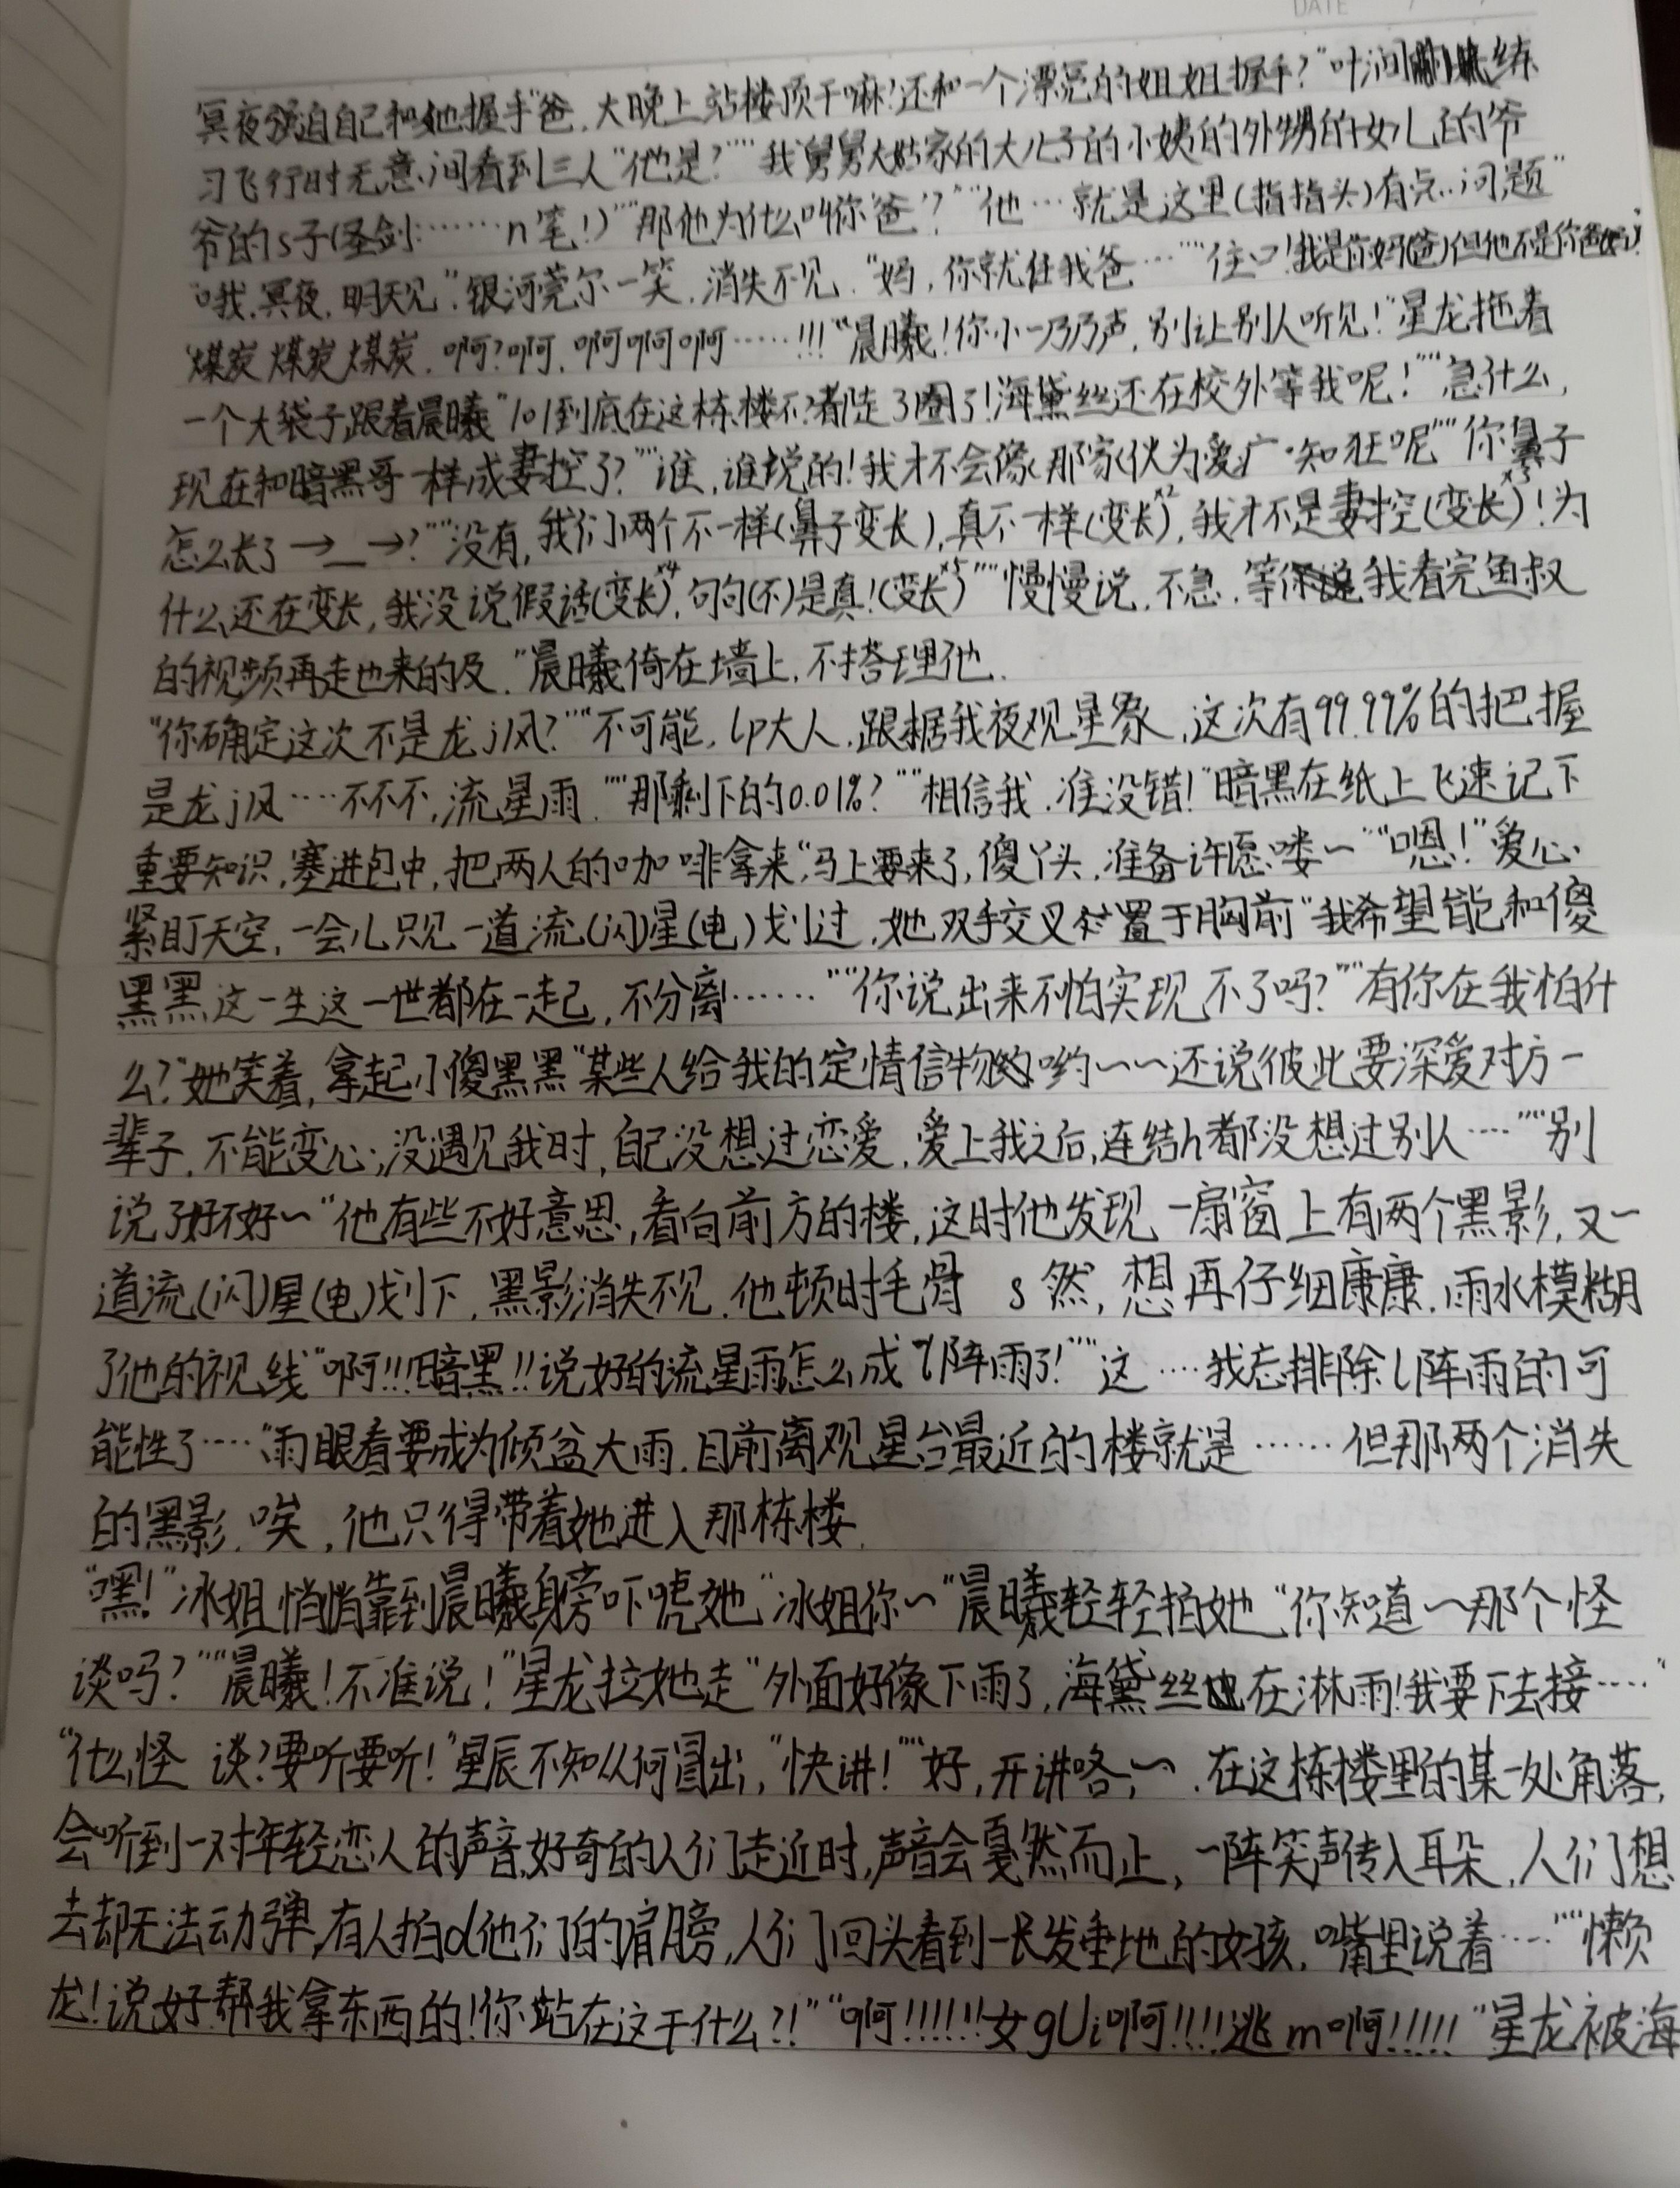 DATE
冥夜强迫自己和她握手"爸,大晚上站楼顶干嘛!还和一个漂亮的姐姐握手?"叶润练
习飞行时无意间看到三人"他是?""我舅舅大姑家的大儿子的小姨的外甥的女儿的爷
爷的s子(圣剑:……n笔!)""那他为什么叫你爸?""他…就是这里(指指头)有点..问题"
"哦.冥夜,明天见".银河莞尔一笑,消失不见."妈,你就任我爸…""住口!我是你妈(爸)但他不是你爸(妈)!"
"煤炭煤炭煤炭.啊?啊.啊啊啊……!!!""晨曦!你小一乃乃声,别让别人听见!"星龙拖着
一个大袋子跟着晨曦"101到底在这栋楼不?都走3圈了!海黛丝还在校外等我呢!""急什么,
现在和暗黑哥一样成妻控了?""谁,谁说的!我才不会像那家伙为爱广·知狂呢""你鼻子
怎么长了→_→?""没有,我们两个不一样(鼻子变长),真不一样(变长)×2,我才不是妻控(变长)×3!为
什么还在变长,我没说假话(变长)×4,句句(不)是真!(变长)×5""慢慢说,不急.等我看完鱼叔
的视频再走也来的及."晨曦倚在墙上,不搭理他.
"你确定这次不是龙j风?""不可能,lp大人.跟据我夜观星象,这次有99.99%的把握
是龙j风….不不不,流星雨.""那剩下的0.01%?""相信我.准没错!"暗黑在纸上飞速记下
重要知识,塞进包中,把两人的咖啡拿来"马上要来了,傻丫头,准备许愿喽~""嗯!"爱心
紧盯天空,一会儿只见一道流(闪)星(电)划过,她双手交叉置于胸前"我希望能和傻
黑黑这一生这一世都在一起,不分离……""你说出来不怕实现不了吗?""有你在我怕什
么?"她笑着,拿起小傻黑黑"某些人给我的定情信物哟~~还说彼此要深爱对方一
辈子,不能变心;没遇见我时,自己没想过恋爱,爱上我之后,连结h都没想过别人….""别
说了好不好~"他有些不好意思,看向前方的楼,这时他发现一扇窗上有两个黑影,又一
道流(闪)星(电)划下,黑影消失不见.他顿时毛骨 s然,想再仔细康康,雨水模糊
了他的视线"啊!!!暗黑!!说好的流星雨怎么成l阵雨了!""这….我忘排除l阵雨的可
能性了….."雨眼看要成为倾盆大雨.目前离观星台最近的楼就是……但那两个消失
的黑影.唉,他只得带着她进入那栋楼.
"嘿!"冰姐悄悄靠到晨曦身旁吓唬她"冰姐你~"晨曦轻轻拍她"你知道~那个怪
谈吗?""晨曦!不准说!"星龙拉她走"外面好像下雨了,海黛丝在淋雨!我要下去接…."
"什么怪谈?要听要听!"星辰不知从何冒出,"快讲!""好,开讲咯;~.在这栋楼里的某一处角落,
会听到一对年轻恋人的声音,好奇的人们走近时,声音会戛然而止,一阵笑声传入耳朵,人们想
去却无法动弹,有人拍d他们的肩膀,人们回头看到一长发垂地的女孩,嘴里说着….""懒
龙!说好帮我拿东西的!你站在这干什么?!""啊!!!!!!女gUi啊!!!!逃m啊!!!!!"星龙被海